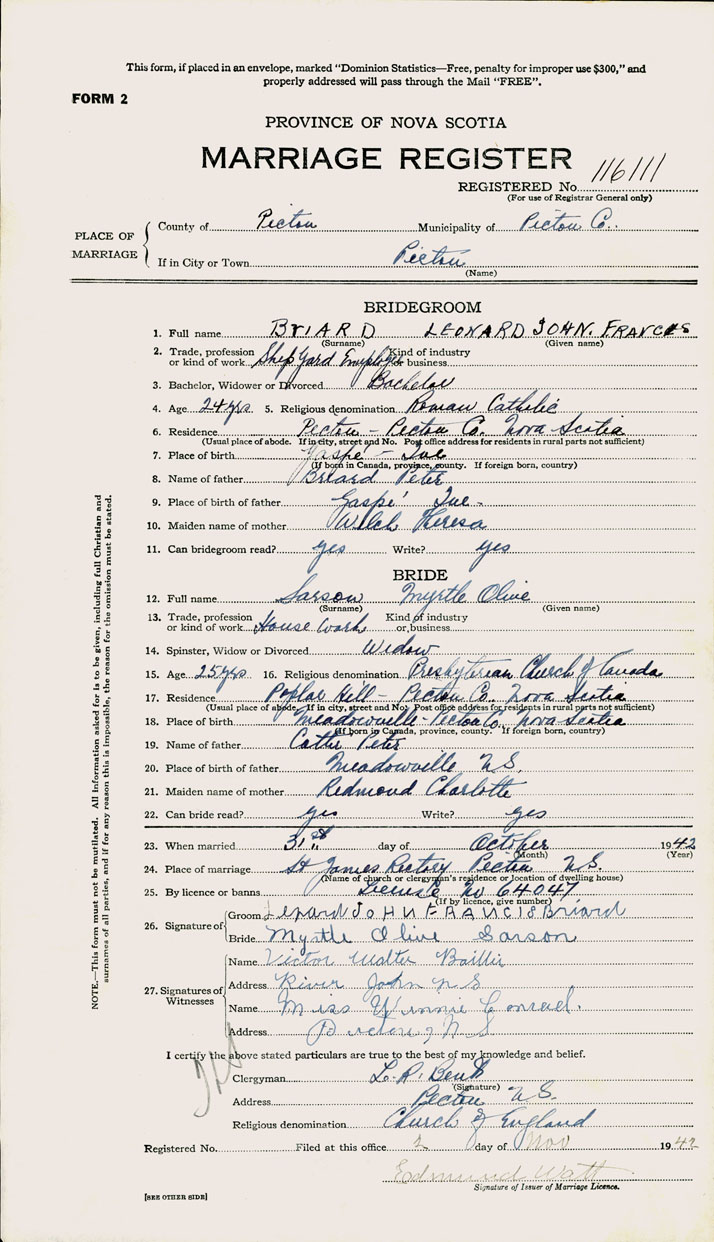 This form, if placed in an envelope, marked "Dominion Statistics—Free, penalty for improper use $300," and
properly addressed will pass through the Mail "FREE".
FORM 2
PROVINCE OF NOVA SCOTIA
MARRIAGE REGISTER
REGISTERED No. 116111
(For use of Registrar General only)
PLACE OF MARRIAGE
County of Pictou Municipality of Pictou Co.
If in City or Town Pictou
(Name)
BRIDEGROOM
1. Full name BRIARD LEONARD JOHN. FRANCES
(Surname) (Given name)
2. Trade, profession or kind of work Ship Yard Employee Kind of industry or business
3. Bachelor, Widower or Divorced Bachelor
4. Age 24 yrs 5. Religious denomination Roman Catholic
6. Residence Pictou - Pictou Co. Nova Scotia
(Usual place of abode. If in city, street and No. Post office address for residents in rural parts not sufficient)
7. Place of birth Gaspé - Que
(If born in Canada, province, county. If foreign born, country)
8. Name of father Briard Peter
9. Place of birth of father Gaspé Que -
10. Maiden name of mother Welch Theresa
11. Can bridegroom read? yes Write? yes
BRIDE
12. Full name Sarson Myrtle Olive
(Surname) (Given name)
13. Trade, profession or kind of work House Work Kind of industry or business
14. Spinster, Widow or Divorced Widow
15. Age 25 yrs 16. Religious denomination Presbyterian Church of Canada
17. Residence Poplar Hill - Pictou Co. Nova Scotia
(Usual place of abode. If in city, street and No. Post office address for residents in rural parts not sufficient)
18. Place of birth Meadowville - Pictou Co. Nova Scotia
(If born in Canada, province, county. If foreign born, country)
19. Name of father Peter
20. Place of birth of father Meadowville N.S.
21. Maiden name of mother Redmond Charlotte
22. Can bride read? yes Write? yes
23. When married 31st day of October 1942
(Month) (Year)
24. Place of marriage St James Rectory Pictou N.S.
(Name of church or clergyman's residence or location of dwelling house)
25. By licence or banns License No 64047
(If by licence, give number)
26. Signature of
Groom Lenard JOHN FRANCIS Briard
Bride Myrtle Olive Sarson
27. Signatures of Witnesses
Name Victor Walter Baillie
Address River John N S
Name Miss Winnie Conrad.
Address Pictou, N S
I certify the above stated particulars are true to the best of my knowledge and belief.
Clergyman L. R.
(Signature)
Address Pictou N.S.
Religious denomination Church of England
Registered No. Filed at this office 2 day of Nov 1942
Edmund Watt
Signature of Issuer of Marriage Licence.
[SEE OTHER SIDE]
NOTE.—This form must not be mutilated. All information asked for is to be given, including full Christian and
surnames of all parties, and if for any reason this is impossible, the reason for the omission must be stated.